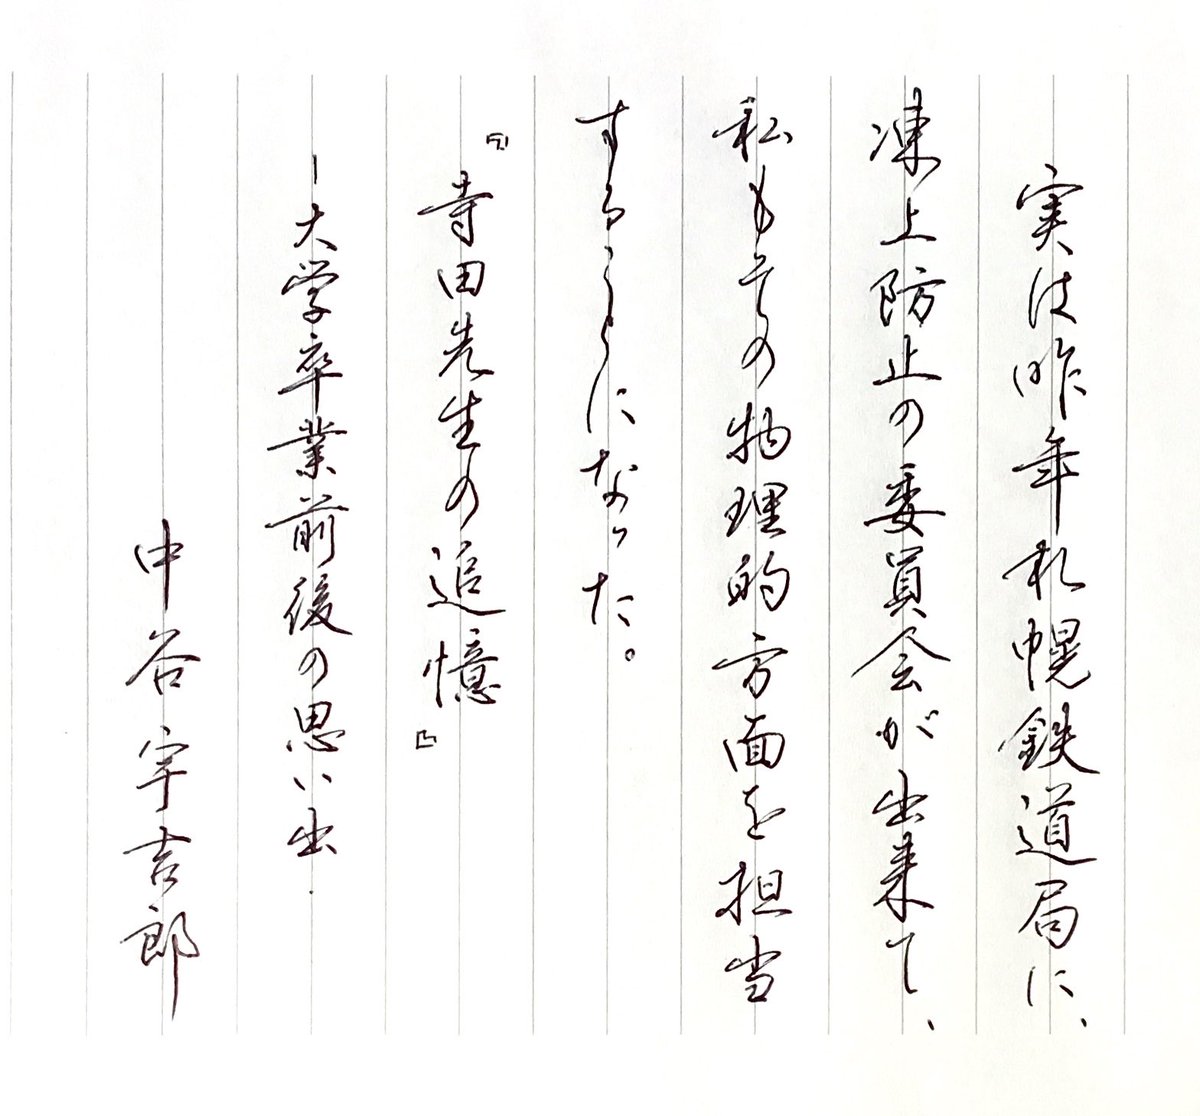 実は昨年札幌鉄道局に、
凍上防止の委員会が出来て、
私もその物理的方面を担当
することになった。
『寺田先生の追憶』
-大学卒業前後の思い出-
中谷宇吉郎